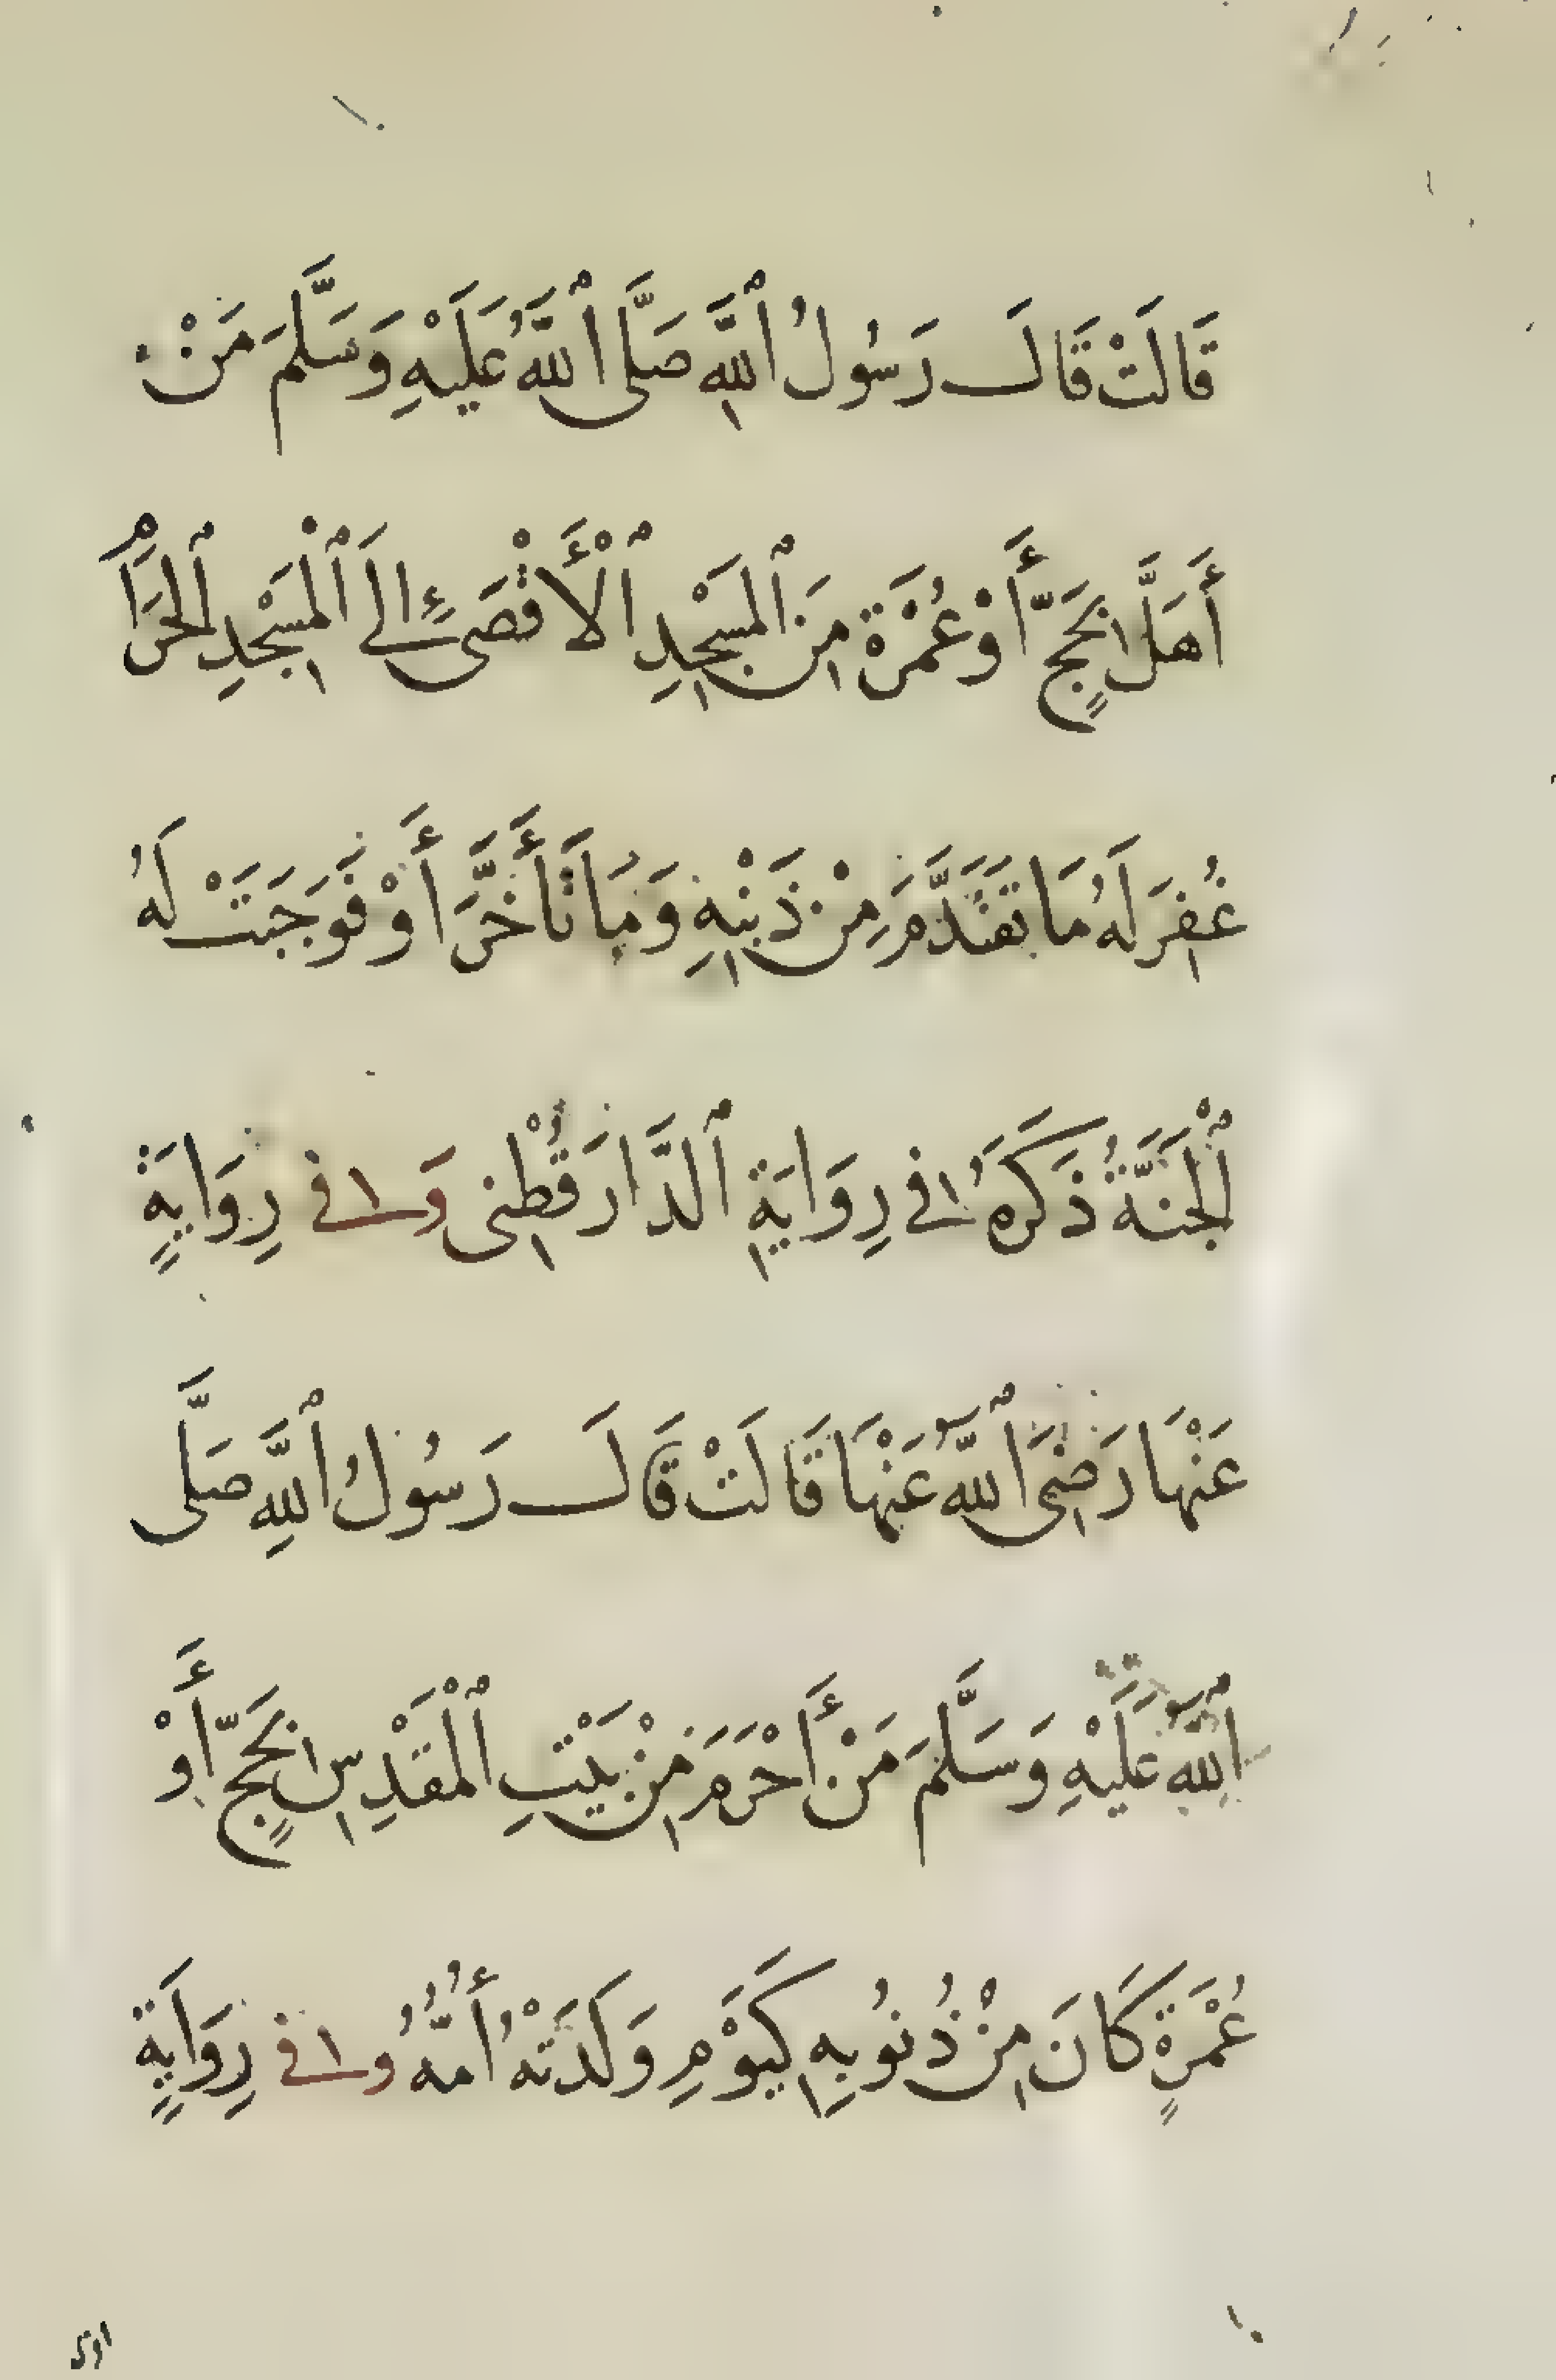 قَالَتْ قَالَ رَسُولُ ٱللَّهِ صَلَّى ٱللَّهُ عَلَيْهِ وَسَلَّمَ مَنْ
أَهَلَّ بِحَجٍّ أَوْ عُمْرَةٍ مِنَ ٱلْمَسْجِدِ ٱلْأَقْصَى إِلَى ٱلْمَسْجِدِ ٱلْحَرَامِ
غُفِرَ لَهُ مَا تَقَدَّمَ مِنْ ذَنْبِهِ وَمَا تَأَخَّرَ أَوْ فَوَجَبَتْ لَهُ
ٱلْجَنَّةُ ذَكَرَهُ فِي رِوَايَةِ ٱلدَّارَقُطْنِي وَفِي رِوَايَةٍ
عَنْهَا رَضِيَ ٱللَّهُ عَنْهَا قَالَتْ قَالَ رَسُولُ ٱللَّهِ صَلَّى
ٱللَّهُ عَلَيْهِ وَسَلَّمَ مَنْ أَحْرَمَ مِنْ بَيْتِ ٱلْمَقْدِسِ بِحَجٍّ أَوْ
عُمْرَةٍ كَانَ مِنْ ذُنُوبِهِ كَيَوْمِ وَلَدَتْهُ أُمُّهُ وَفِي رِوَايَةٍ